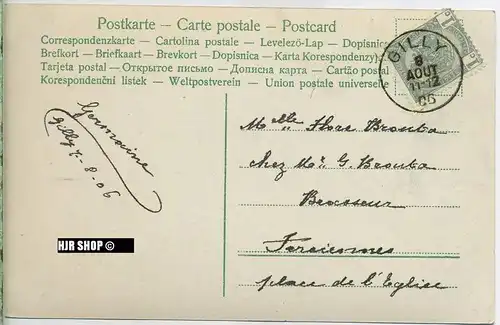 Postkarte – Carte postale – Postcard
Correspondenzkarte – Cartolina postale – Levelező-Lap – Dopisnice
Brefkort – Briefkaart – Brevkort – Dopisnica – Karta Korespondenzyj
Tarjeta postal – Открытое письмо – Дописна карта – Cartão postal
Korespondenční lístek – Weltpostverein – Union postale universelle
GILLY
8
AOUT
11-12
06
Germaine
Gilly 7-8-06
Melle Flore Brouta
chez Mr. G. Brouta
Brasseur
Farciennes
place de l'Eglise
HJR SHOP ©